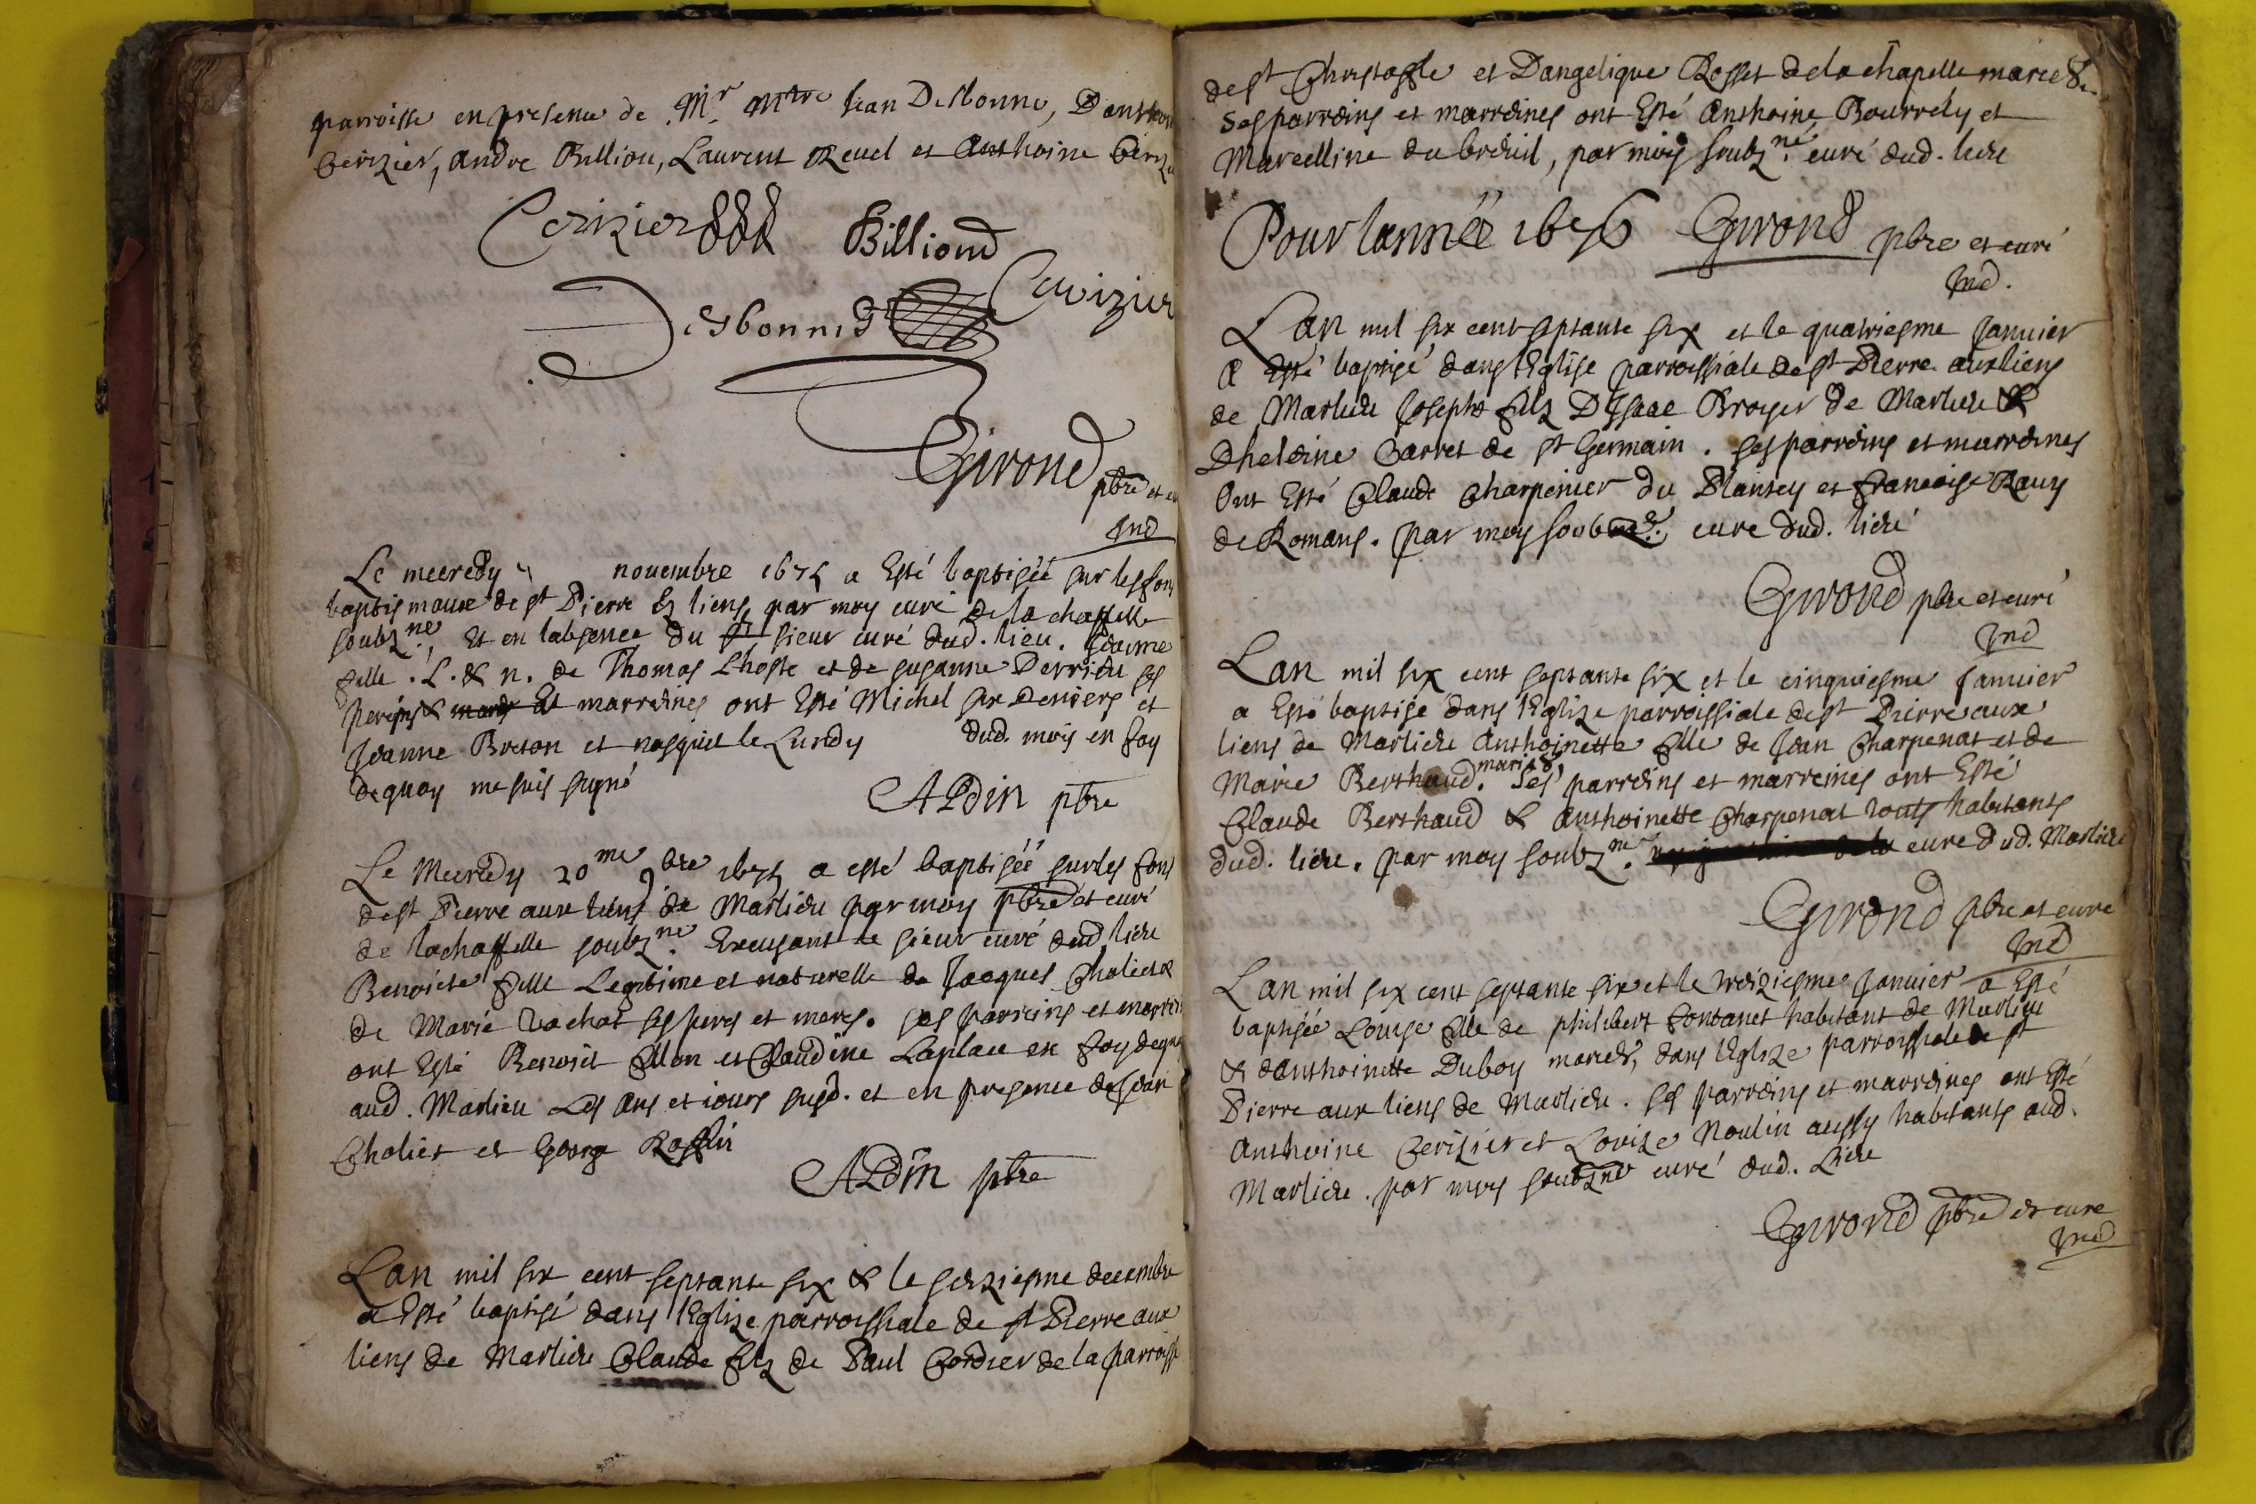 parroisse en presence de Mr Mtre Jean Desbonne, Danthoi
Cerizier, andre Billion, Laurent Revel et Anthoine Ceriz
Cerizier Billiond
Cerizier
Desbonnes
Girond pbre et cu
Ind
Le mecredy novembre 1675 a Esté baptisée sur les fons
baptismaux de st Pierre Es liens, par moy curé de la chaffelle
soubzné, et en labsence du sieur curé dud. lieu. Jeanne
fille . L. & n. de Thomas Lhoste et de susanne Derrieu ses
marreines ont Esté Michel six deniers et
Jeanne Breton et nasquit le Lundy dud. mois en foy
de quoy me suis signé
ALDin pbre
Le Mecredy 20me 9bre 1675 a esté baptisée sur les fons
de st Pierre aux liens de Marlieu par moy pbre et curé
de la chaffelle soubzné. Excusant le sieur curé dud. lieu
Benoiste fille Legitime et naturelle de Jacques Choliet &
de Marie Vachat ses peres et meres. ses parreins et marrei
ont Esté Benoist Allon et Claudine Laplace en foy de quoy
aud. Marlieu Les ans et iours susd. et en presence de Jean
Choliet et George Roffin
ALDin pbre
Lan mil six cent septante six & le seiziesme decembre
a Esté baptisé dans lEglize parroissiale de st Pierre aux
liens de Marlieu Claude filz de Paul Cordier de la parroisse
de st Christofle et Dangelique Rosset de la chapelle mariés.
Ses parreins et marreines ont Esté Anthoine Bourrely et
Marcelline du breuil, par moy soubzné. curé dud. lieu
Pour lannéé 1676 Girond pbre et curé
Ind.
Lan mil six cent septante six et le quatriesme Januier
a Esté baptisé dans lEglise parroissiale de st Pierre aux liens
de Marlieu Joseph filz DIsaac Broyer de Marlieu &
Dheleine Carret de st Germain . ses parreins et marreines
Ont Esté Claude Charpenier du Plantey et Francoise Ravy
de Romans. par moy soubné. cure dud. lieu
Girond pbre et curé
Ind
Lan mil six cent septante six et le cinquiesme Januier
a Esté baptisé dans lEglize parroissiale de st Pierre aux
liens de Marlieu Anthoinette fille de Jean Charpenat et de
Marie Berthaud mariés. Ses parreins et marreines ont Esté
Claude Berthaud & Anthoinette Charpenat touts habitants
dud. lieu. par moy soubzné. cure dud. Marlieu
Girond pbre et cure
Ind
Lan mil six cent septante six et le treiziesme Januier a Esté
baptisée Louise fille de philibert Fontanet habitant de Marlieu
& danthoinette Duboy mariés, dans lEglize parroissiale de st
Pierre aux liens de Marlieu . ses parreins et marreines ont Esté
Anthoine Cerizier et Louize Moulin aussy habitants aud.
Marlieu . par moy soubzné curé dud. Lieu
Girond pbre et cure
Ind